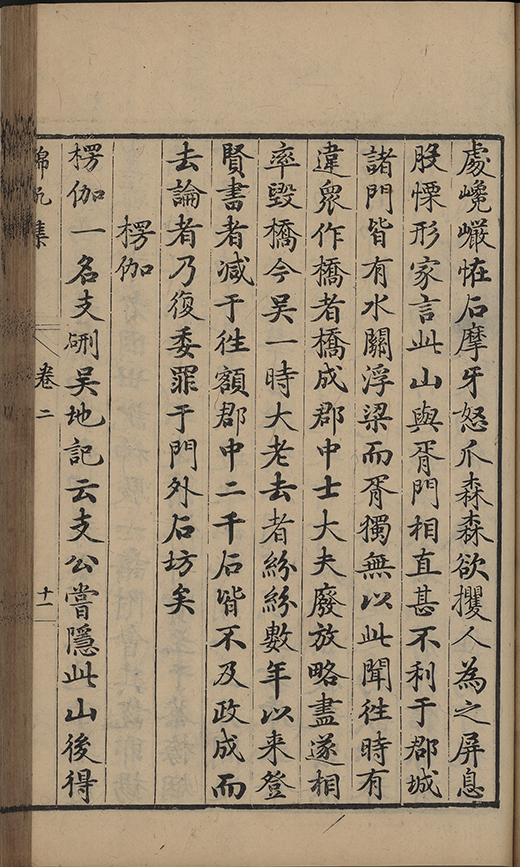 處巉巖恠石摩牙怒爪森森欲攫人為之屏息
股慄形家言此山與胥門相直甚不利于郡城
諸門皆有水關浮梁而胥獨無以此聞往時有
違眾作橋者橋成郡中士大夫廢放略盡遂相
率毀橋今吳一時大老去者紛紛數年以来登
賢書者減于往額郡中二千石皆不及政成而
去論者乃復委罪于門外石坊矣
楞伽
楞伽一名支硎吳地記云支公嘗隱此山後得
錦帆集
卷二
十一